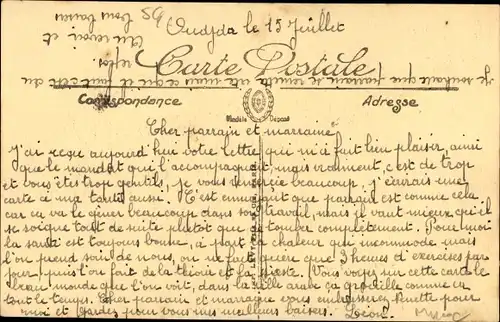 Oudjda le 15 Juillet
Carte Postale
Correspondance
Adresse
Modèle Déposé
Cher parrain et marraine
J'ai reçu aujourd'hui votre lettre qui m'a fait bien plaisir, ainsi
que le mandat qui l'accompagnait, mais vraiment, c'est de trop
et vous êtes trop gentils, je vous remercie beaucoup, j'écrirais une
carte à ma tante aussi. C'est ennuyant que parrain est comme cela
car ça va le gêner beaucoup dans son travail, mais il vaut mieux qu'il
se soigne tout de suite plutôt que de tomber complètement. Pour moi
la santé est toujours bonne, à part la chaleur qui incommode mais
l'on prend soin de nous, on ne fait guère que 3 heures d'exercices par
jour, puis l'on fait de la théorie et la sieste. Vous voyez sur cette carte le
beau monde que l'on voit, dans la ville arabe ça grouille comme ça
tout le temps. Cher parrain et marraine vous embrasserez Ninette pour
moi et gardez pour vous mes meilleurs baisers. Léon
je souhaite que parrain se remette vite mais ce qu'il faut c'est du
repos.
Au revoir et
bons baisers